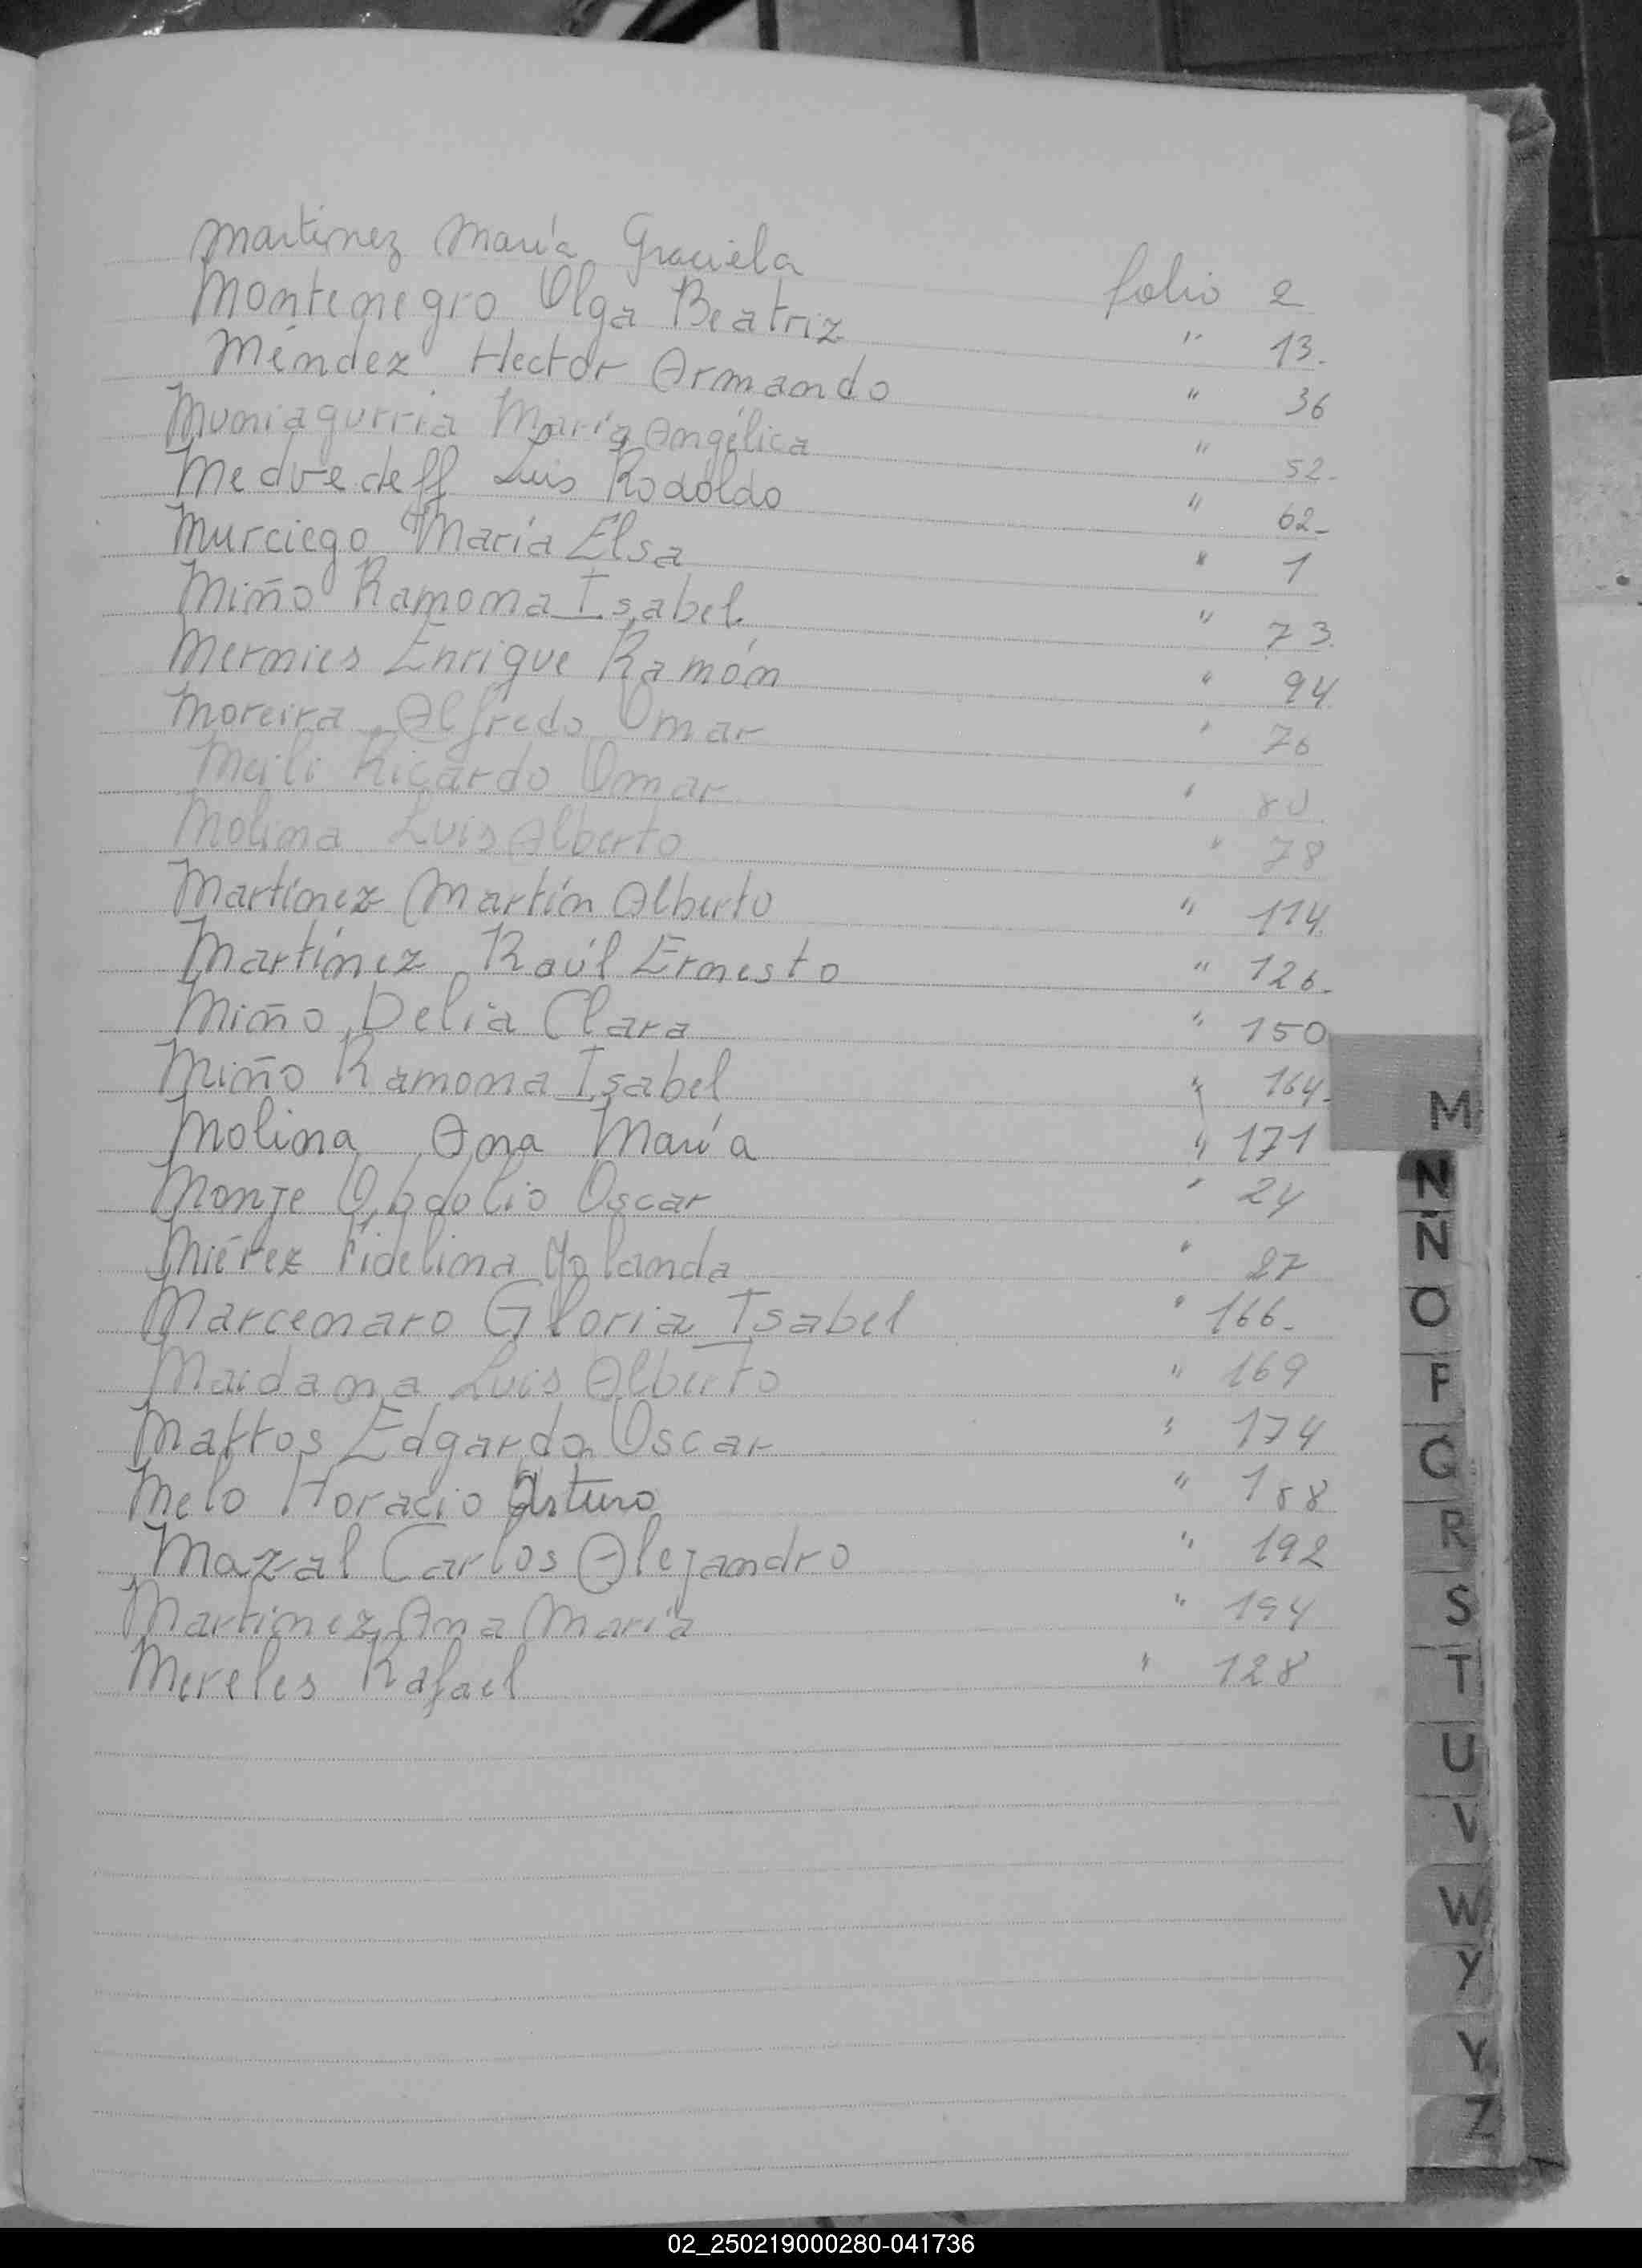 Martinez María Graciela folio 2
Montenegro Olga Beatriz " 13.
Méndez Hector Armando " 36
Muniagurria María Angélica " 52.
Medvedeff Luis Rodoldo " 62-
Murciego María Elsa " 1
Miño Ramona Isabel " 73.
Mernies Enrique Ramón " 94
Moreira Alfredo Omar " 76
Meili Ricardo Omar " 80
Molina Luis Alberto " 78
Martínez Martín Alberto " 114.
Martínez Raúl Ernesto " 126-
Miño Delia Clara " 150
Miño Ramona Isabel " 164-
Molina Ana María " 171
Monje Oscar " 24
Miérez Fidelina Yolanda " 27
Marcenaro Gloria Isabel " 166-
Maidana Luis Alberto " 169
Mattos Edgardo Oscar " 174
Melo Horacio Arturo " 188
Mazal Carlos Alejandro " 192
Martinez Ana María " 194
Mereles Rafael " 128
M
N
N
O
P
Q
R
S
T
U
V
W
Y
Y
Z
02_250219000280-041736